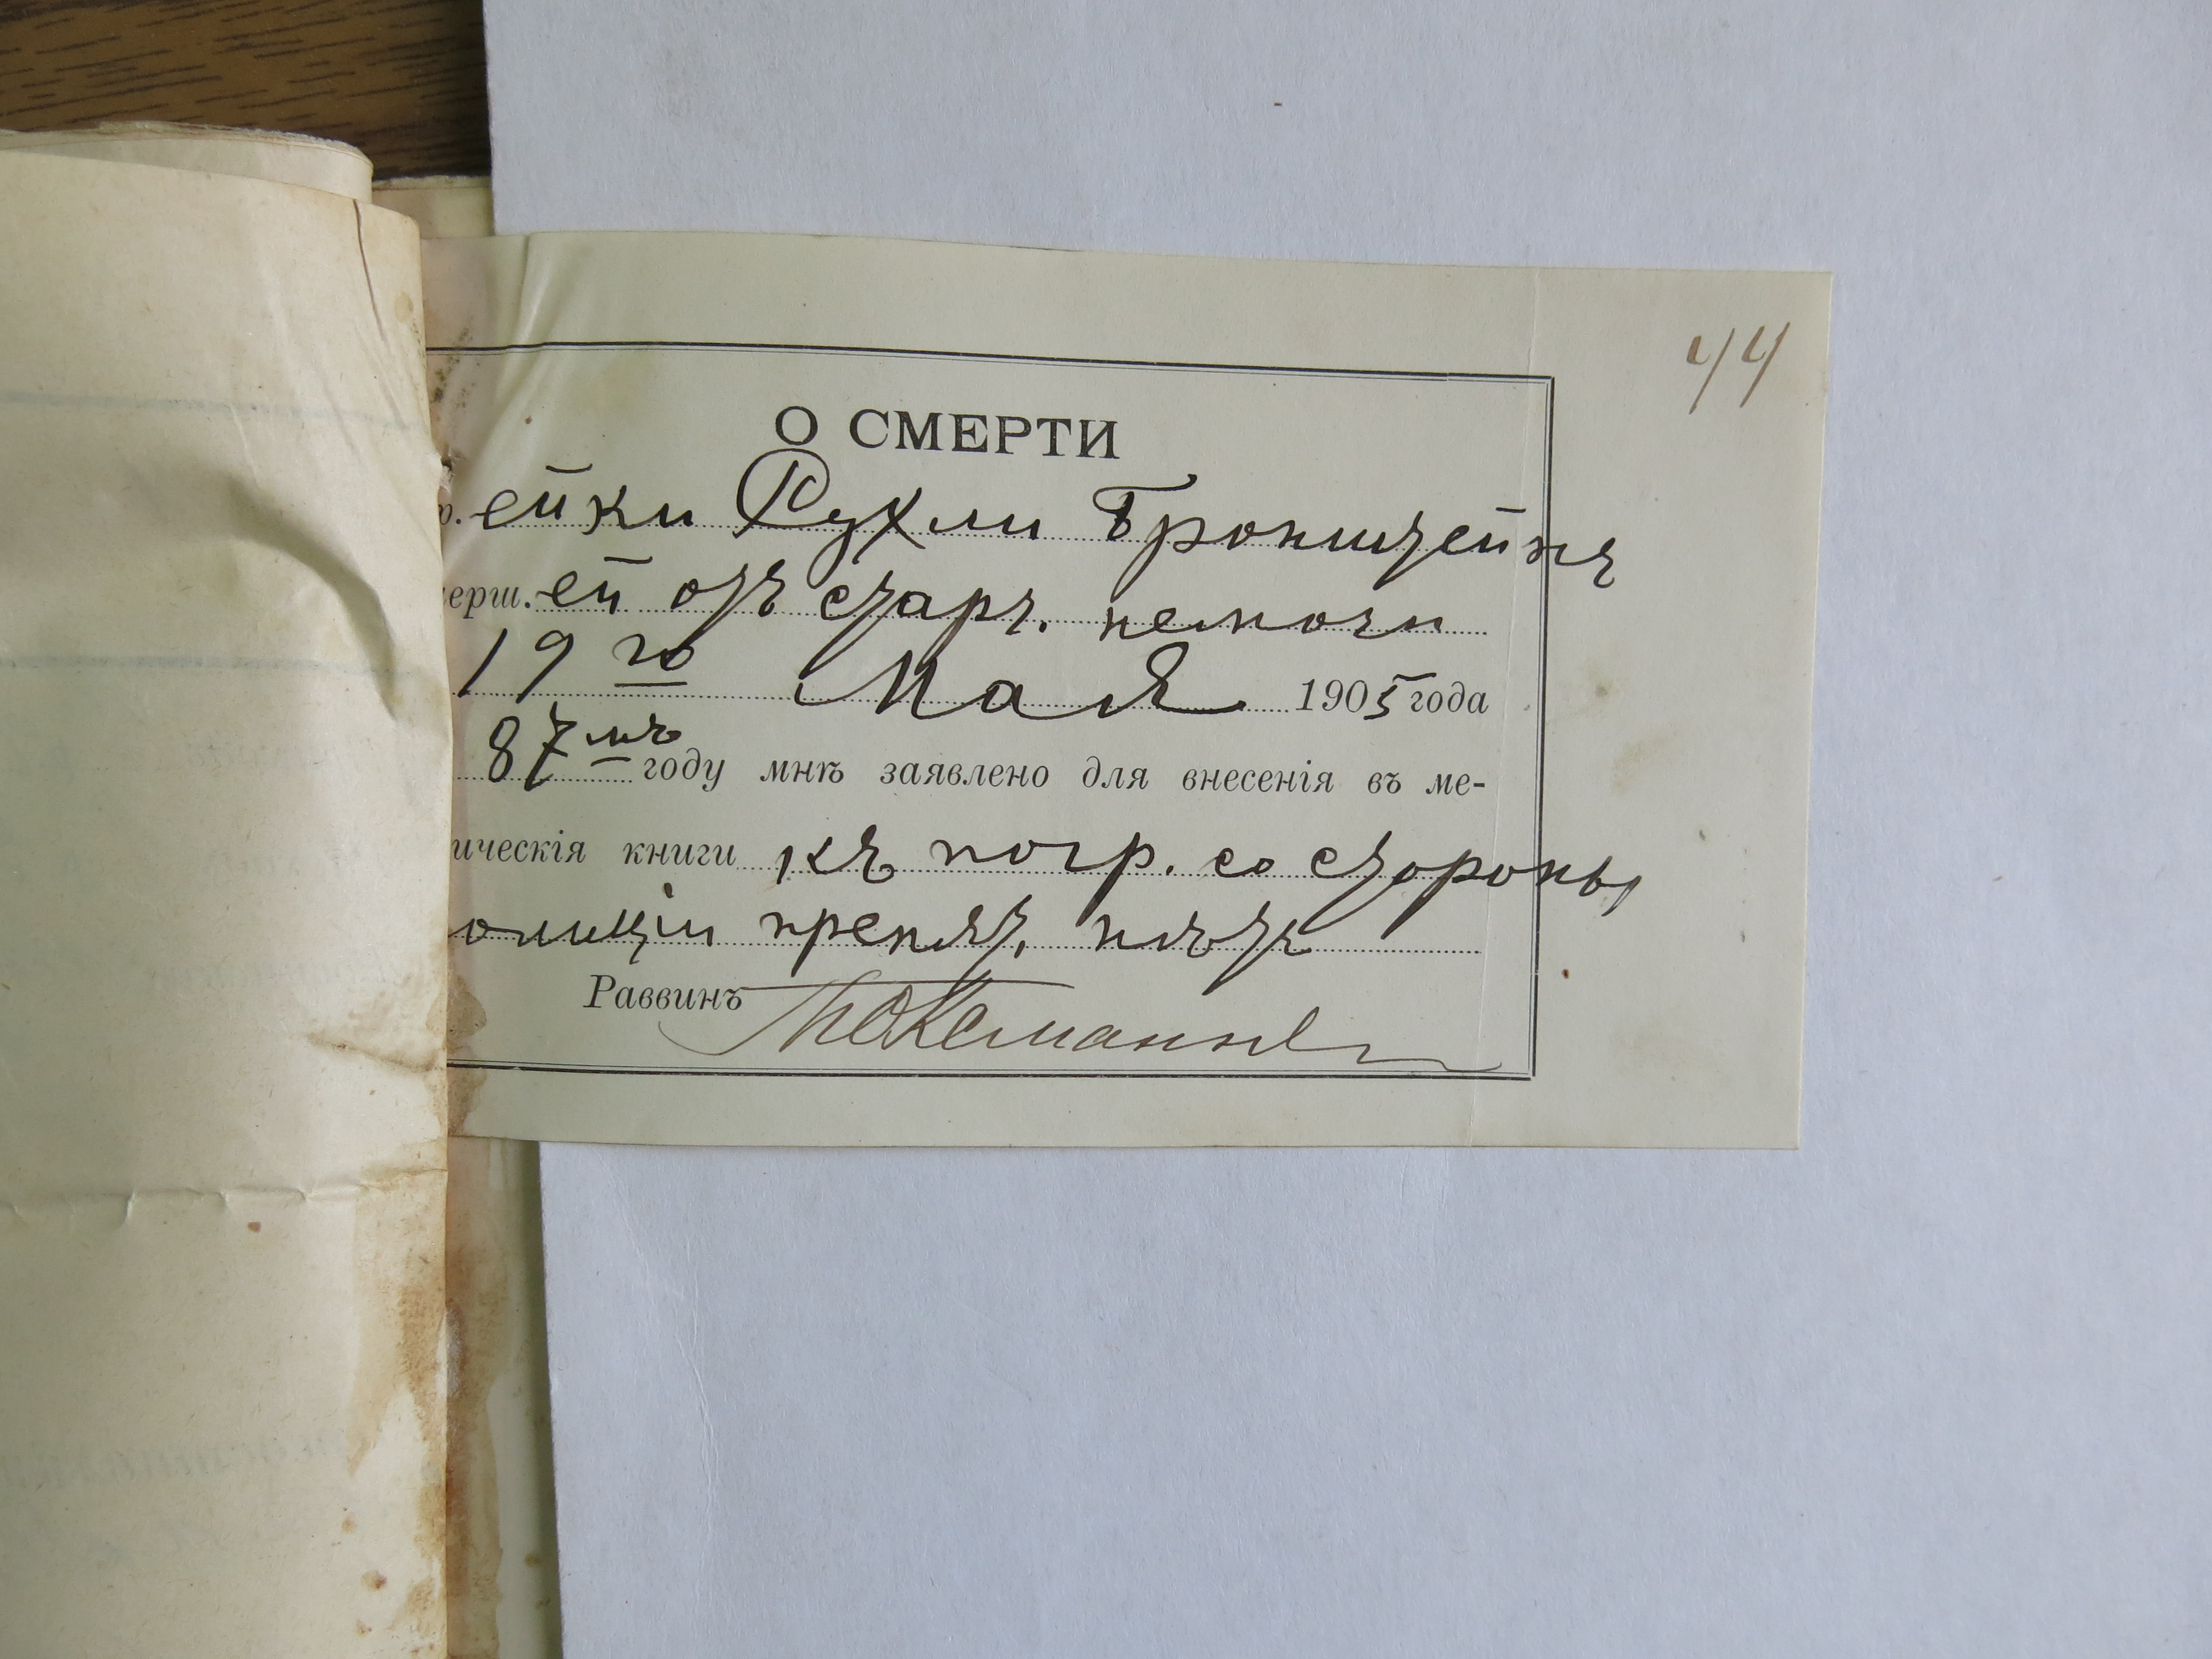 44
О СМЕРТИ
р. ейки Рухли Бронштейнъ
ерш. ей отъ старч. немочи
19 го Мая 1905 года
87 мъ году мнѣ заявлено для внесенія въ ме-
ическія книги къ погр. со стороны
олиціи препят. нѣтъ
Раввинъ